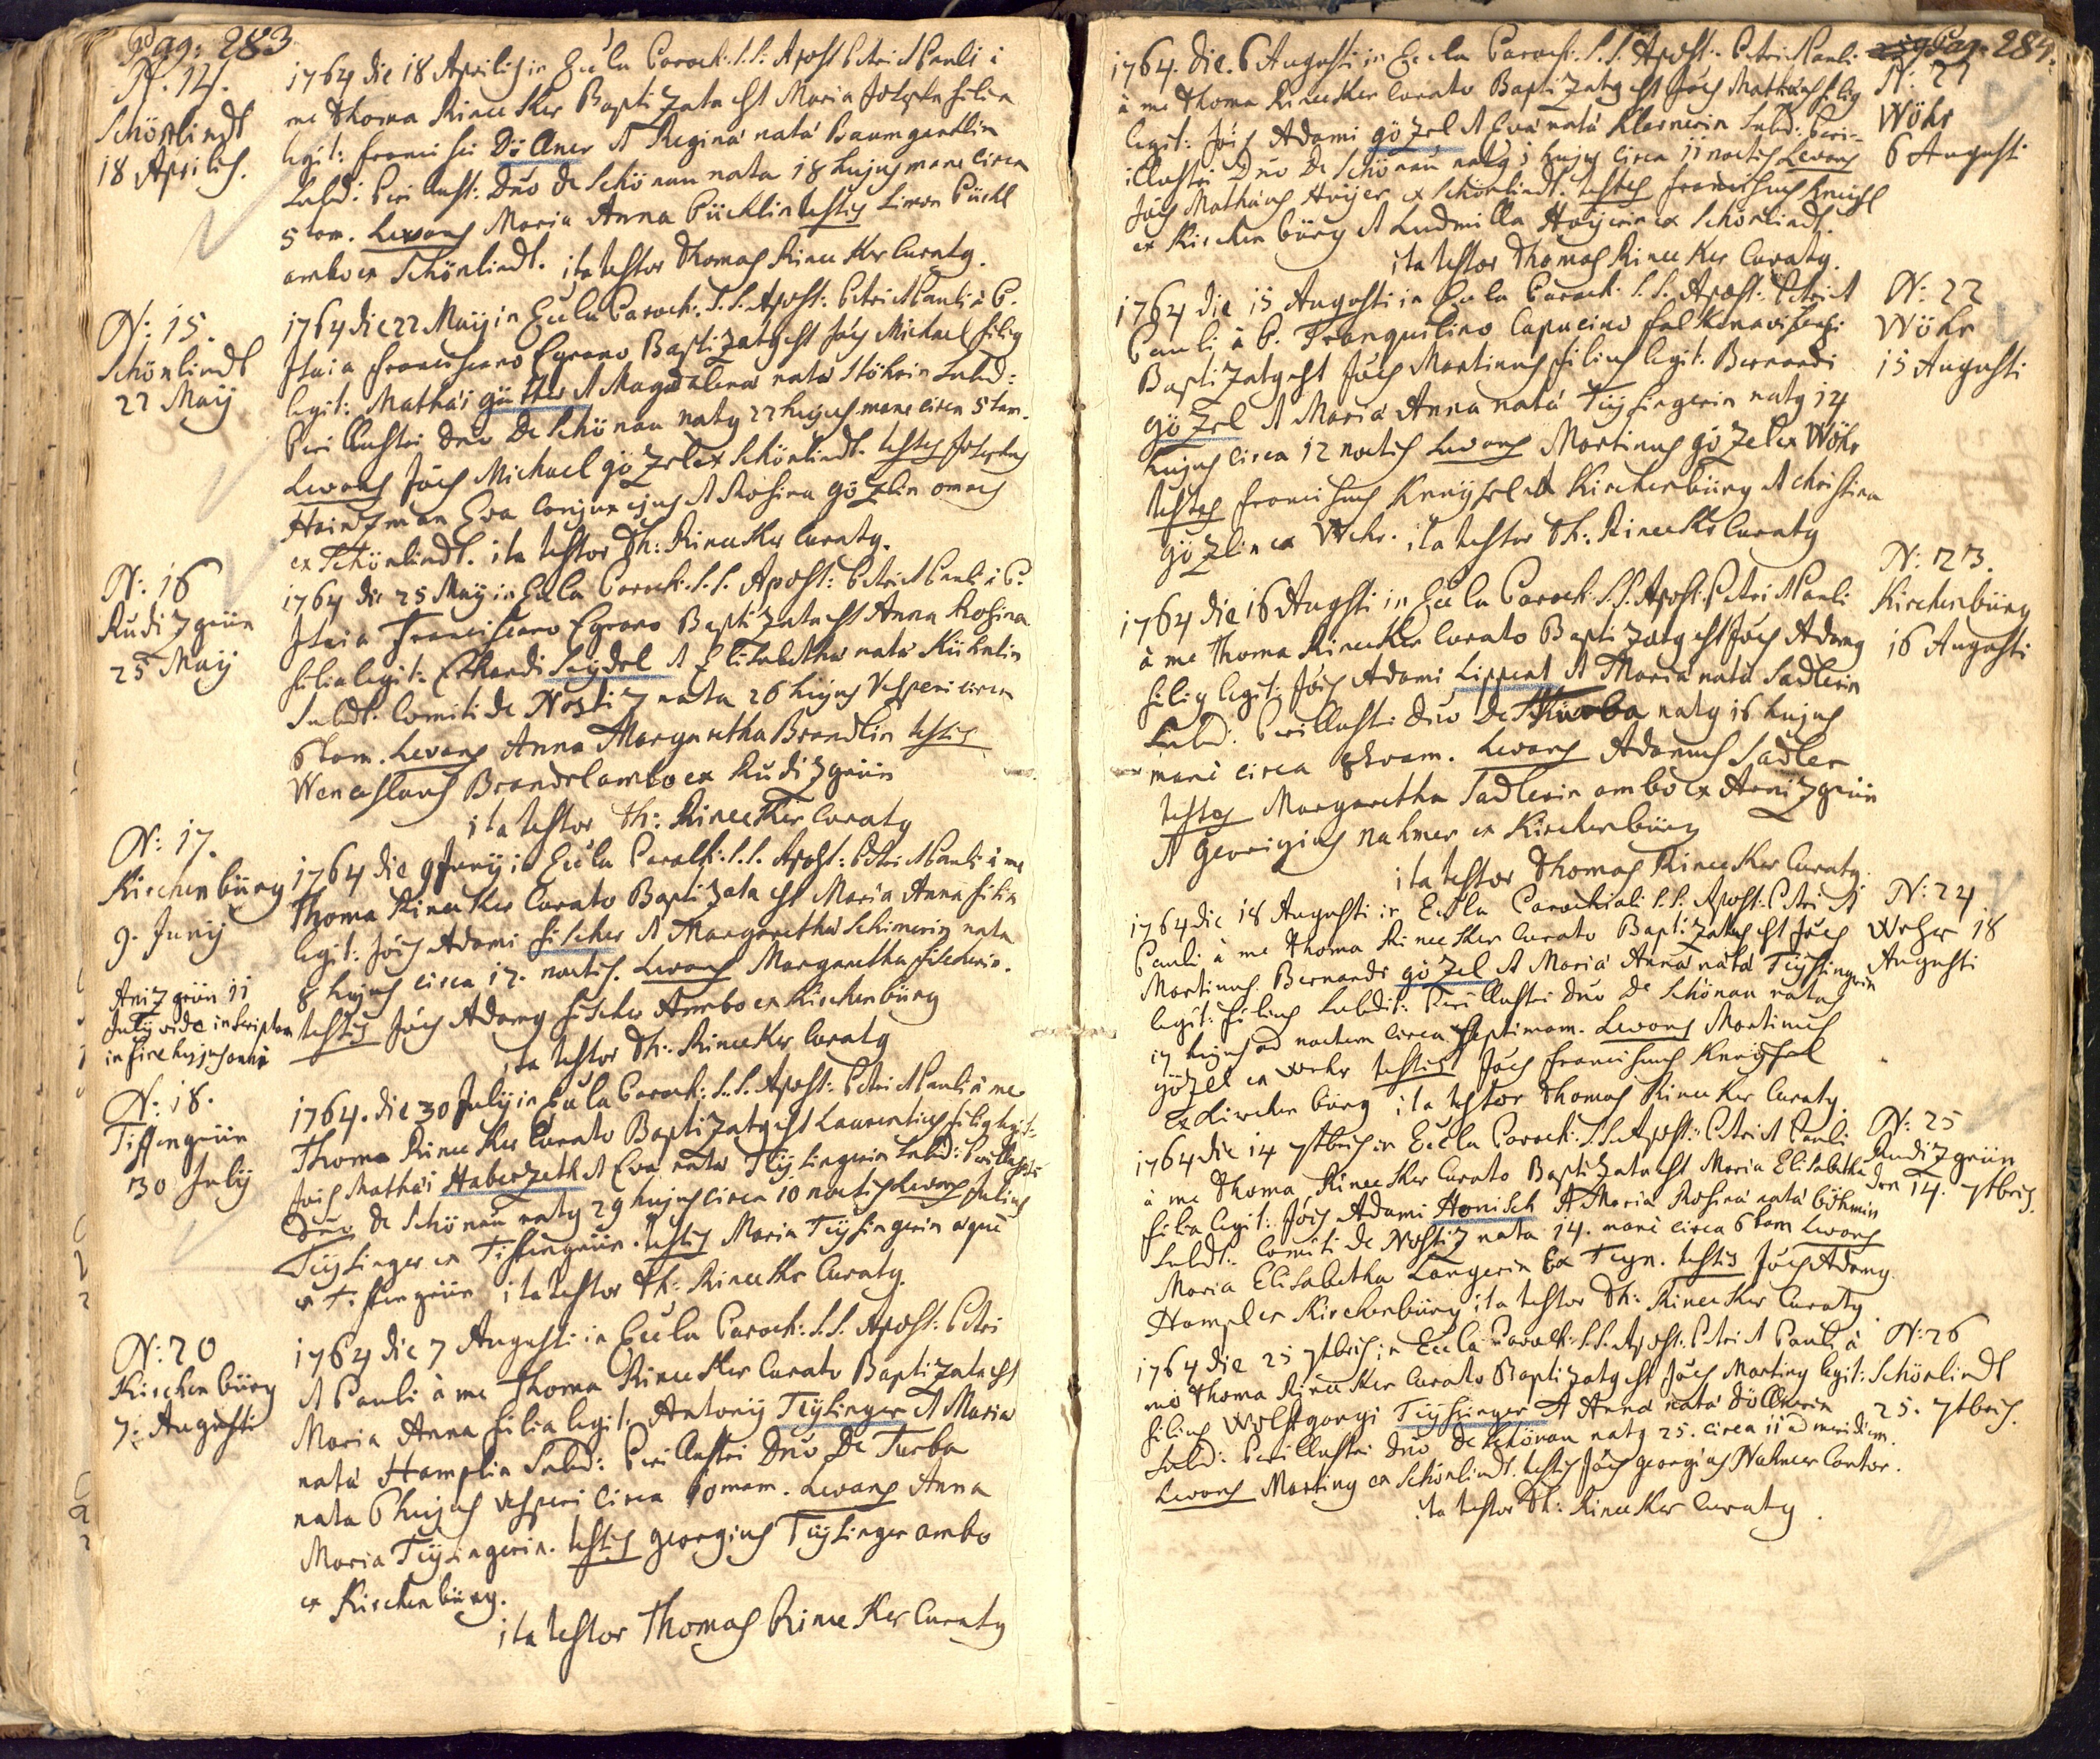 Pag: 283
N. 14.
Schönlindt
18 Aprilis.
1764 die 18 Aprilis in Eccla Paroch: S.S. Apost Petri et Pauli à
me Thoma Rinecker Baptizata est Maria Josepha filia
legit: Francisci Döllner et Regina nata Baumgartlin
Subd: Perillust: Dno de Schönau nata 18 hujus mane circa
5tam. Levans Maria Anna Pücklin testis Simon Pückl
ambo ex Schönlindt. ita testor Thomas Rinecker Curatg.
N: 15.
Schönlindt
22 Maÿ
1764 die 22 Maÿ in Eccla Paroch: S.S. Apost: Petri et Pauli à P.
Franciscano Egrano Baptizatg est Joes Michael filig
legit: Mathæi Güttler et Magdalena nata Stöhrin Subd:
Perillustri Dno De Schönau natg 22 hujus mane circa 5tam.
Levans Joes Michael Gözel ex Schönlindt. testes Josephus
Heinzman Eva Conjunx ejus et Rosina Gözlin omnes
ex Schönlindt. ita testor Th: Rinecker Curatg.
N: 16
Rudizgrün
25 Maÿ
1764 die 25 Maÿ in Eccla Paroch: S.S. Apost: Petri et Pauli à P.
Franciscano Egrano Baptizata est Anna Rosina
filia legit: Erhardi Seÿdel et Elisabetha nata Kühnlin
Subdt. Comiti de Nostiz nata 26 hujus Vesperi circa
6tam. Levans Anna Margaretha Brandlin testis
Wenceslaus Brandel ambo ex Rudizgrün
ita testor Th: Rinecker Curatg
N: 17.
Kirchenbürg
9. Junÿ
1764 die 9 Junÿ in Eccla Paroch: S.S. Apost: Petri et Pauli à me
Thoma Rinecker Curato Baptizata est Maria Anna filia
legit: Jois Adami Fischer et Margaretha Schimerin nata
8 hujus circa 12. noctis. Levans Margaretha Fischerin.
testis Joes Adamg Fischer Ambo ex Kirchenbürg
ita testor Th: Rinecker Curatg
Anizgrün 11
Julÿ vide inscriptam
in fine hujus anni
N: 18.
Tiffengrün
30 Julÿ
1764. die 30 Julÿ in Eccla Paroch: S.S. Apost: Petri et Pauli à me
Thoma Rinecker Curato Baptizatg est Laurentius filig legit:
Jois Mathæi Haberzeth et Eva nata Teÿsingerin Subd: Perillustri
Dno de Schönau natg 29 hujus circa 10 noctis Levans Julius
Teÿsinger ex Tiffengrün. testis Maria Teÿsingerin æque
ex Tiffengrün ita testor Th: Rinecker Curatg.
N: 20
Kirchenbürg
7: Augusti
1764 die 7 Augusti in Eccla Paroch: S.S. Apost: Petri
et Pauli à me Thoma Rinecker Curato Baptizata est
Maria Anna filia legit: Antonÿ Teÿsinger et Maria
nata Hamplin Subd: Perillustri Dno De Turba
nata 6 hujus vesperi circa 10mam. Levans Anna
Maria Teÿsingerin. testis Georgius Teÿsinger ambo
ex Kirchenbürg.
ita testor Thomas Rinecker Curatg
Pag: 284.
N: 21
Wöhr
6 Augusti
1764. die. 6 Augusti in Eccla Paroch: S.S. Apost: Petri et Pauli
à me Thoma Rinecker Curato Baptizatg est Joes Mathæus filig
legit: Jois Adami Gözel et Eva nata Klernerin Subd: Peri-
illustri Dno De Schönau natg 5 hujus circa 11 noctis Levans
Joes Mathæus Hoÿer ex Schönlindt. testes Franciscus Kneisl
ex Kirchenbürg et Ludmilla Hoÿerin ex Schönlindt.
ita testor Thomas Rinecker Curatg.
N: 22
Wöhr
15 Augusti
1764 die 15 Augusti in Eccla Paroch: S.S. Apost: Petri et
Pauli à P. Tranquilino Capucino Falkenaviensi
Baptizatg est Joes Martinus filius legit: Bernardi
Gözel et Maria Anna nata Teÿsingerin natg 14
hujus circa 12 noctis Levans Martinus Gözel ex Wöhr
testes Franciscus Kneÿsel ex Kirchenbürg et Christina
Gözlin ex Wehr. ita testor Th: Rinecker Curatg
N: 23.
Kirchenbürg
16 Augusti
1764 die 16 Augsti in Eccla Paroch: S.S. Apost: Petri et Pauli
à me Thoma Rinecker Curato Baptizatg est Joes Adamg
filig legit: Jois Adami Lippert et Maria nata Sadlerin
Subd: Perillusti Dno De Thurba natg 16 hujus
mane circa 8tvam. Levans Adamus Sadler
testes Margaretha Sadlerin ambo ex Arnizgrün
et Georigius Nahmer ex Kirchenbürg
ita testor Thomas Rinecker Curatg.
N: 24
Wehr 18
Augusti
1764 die 18 Augusti in Eccla Parochiali S.S. Apost: Petri et
Pauli à me Thoma Rinecker Curato Baptizatus est Joes
Martinus. Bernardi Gözel et Maria Anna nata Teÿsingrin
legit: filius Subdit: Perillustri Dno De Schönau natus
17 hujus ad noctem circa Septimam. Levans Martinus
Gözel ex Wehr testis Joes Franciscus Kneÿsel
ex Kirchenbürg ita testor Thomas Rinecker Curatg.
N: 25
Rudizgrün
den 14. 7tbris.
1764 die 14 7tbris in Eccla Paroch: S.S. Apost: Petri et Pauli
à me Thoma Rinecker Curato Baptizata est Maria Elisabetha
filia legit: Jois Adami Honisch et Maria Rosina nata Böhmin
Subdt: Comiti de Nostiz nata 14. mane circa 6tam Levans
Maria Elisabetha Langerin ex Teyn. testis Joes Adamg
Hampl ex Kirchenbürg ita testor Th: Rinecker Curatg
N: 26
Schönlindt
25. 7tbris.
1764 die 25 7tbris in Eccla Paroch: S.S. Apost: Petri et Pauli à
me Thoma Rinecker Curato Baptizatg est Joes Marting legit:
filius Wolfgangi Teÿsinger et Anna nata Döllnerin
Subd: Perillustri Dno de Schönau natg 25. circa 11 ad meridiem.
Levans Marting ex Schönlindt. testis Joes Georgius Nahmer Cantor.
ita testor Th: Rinecker Curatg.